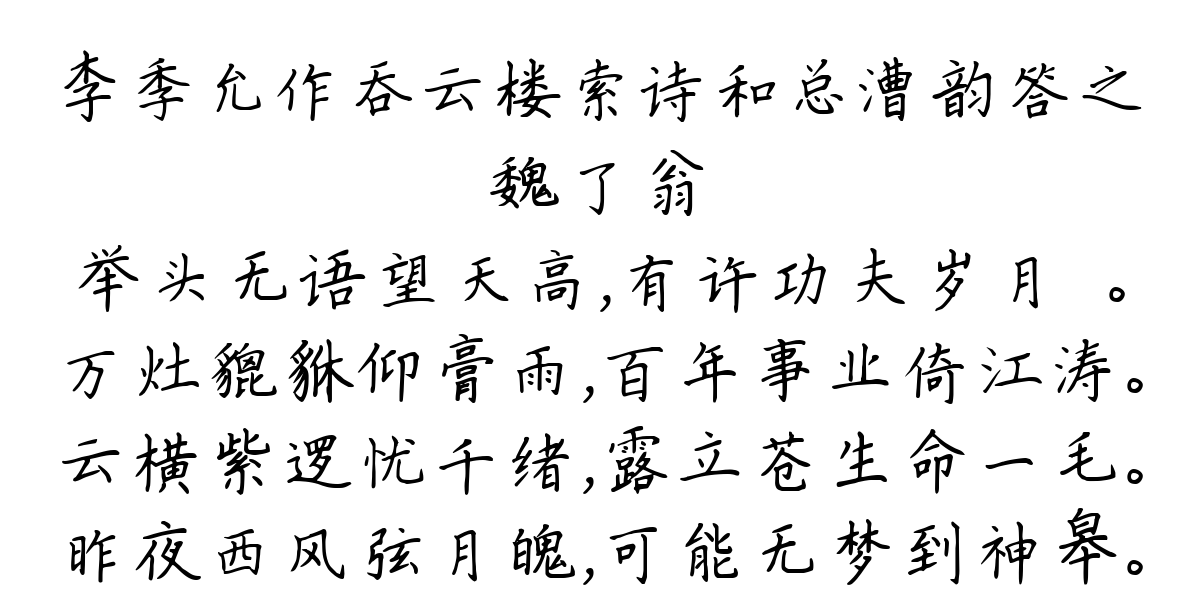 李季允作吞云楼索诗和总漕韵答之
魏了翁
举头无语望天高,有许功夫岁月 。
万灶貔貅仰膏雨,百年事业倚江涛。
云横紫逻忧千绪,露立苍生命一毛。
昨夜西风弦月魄,可能无梦到神皋。